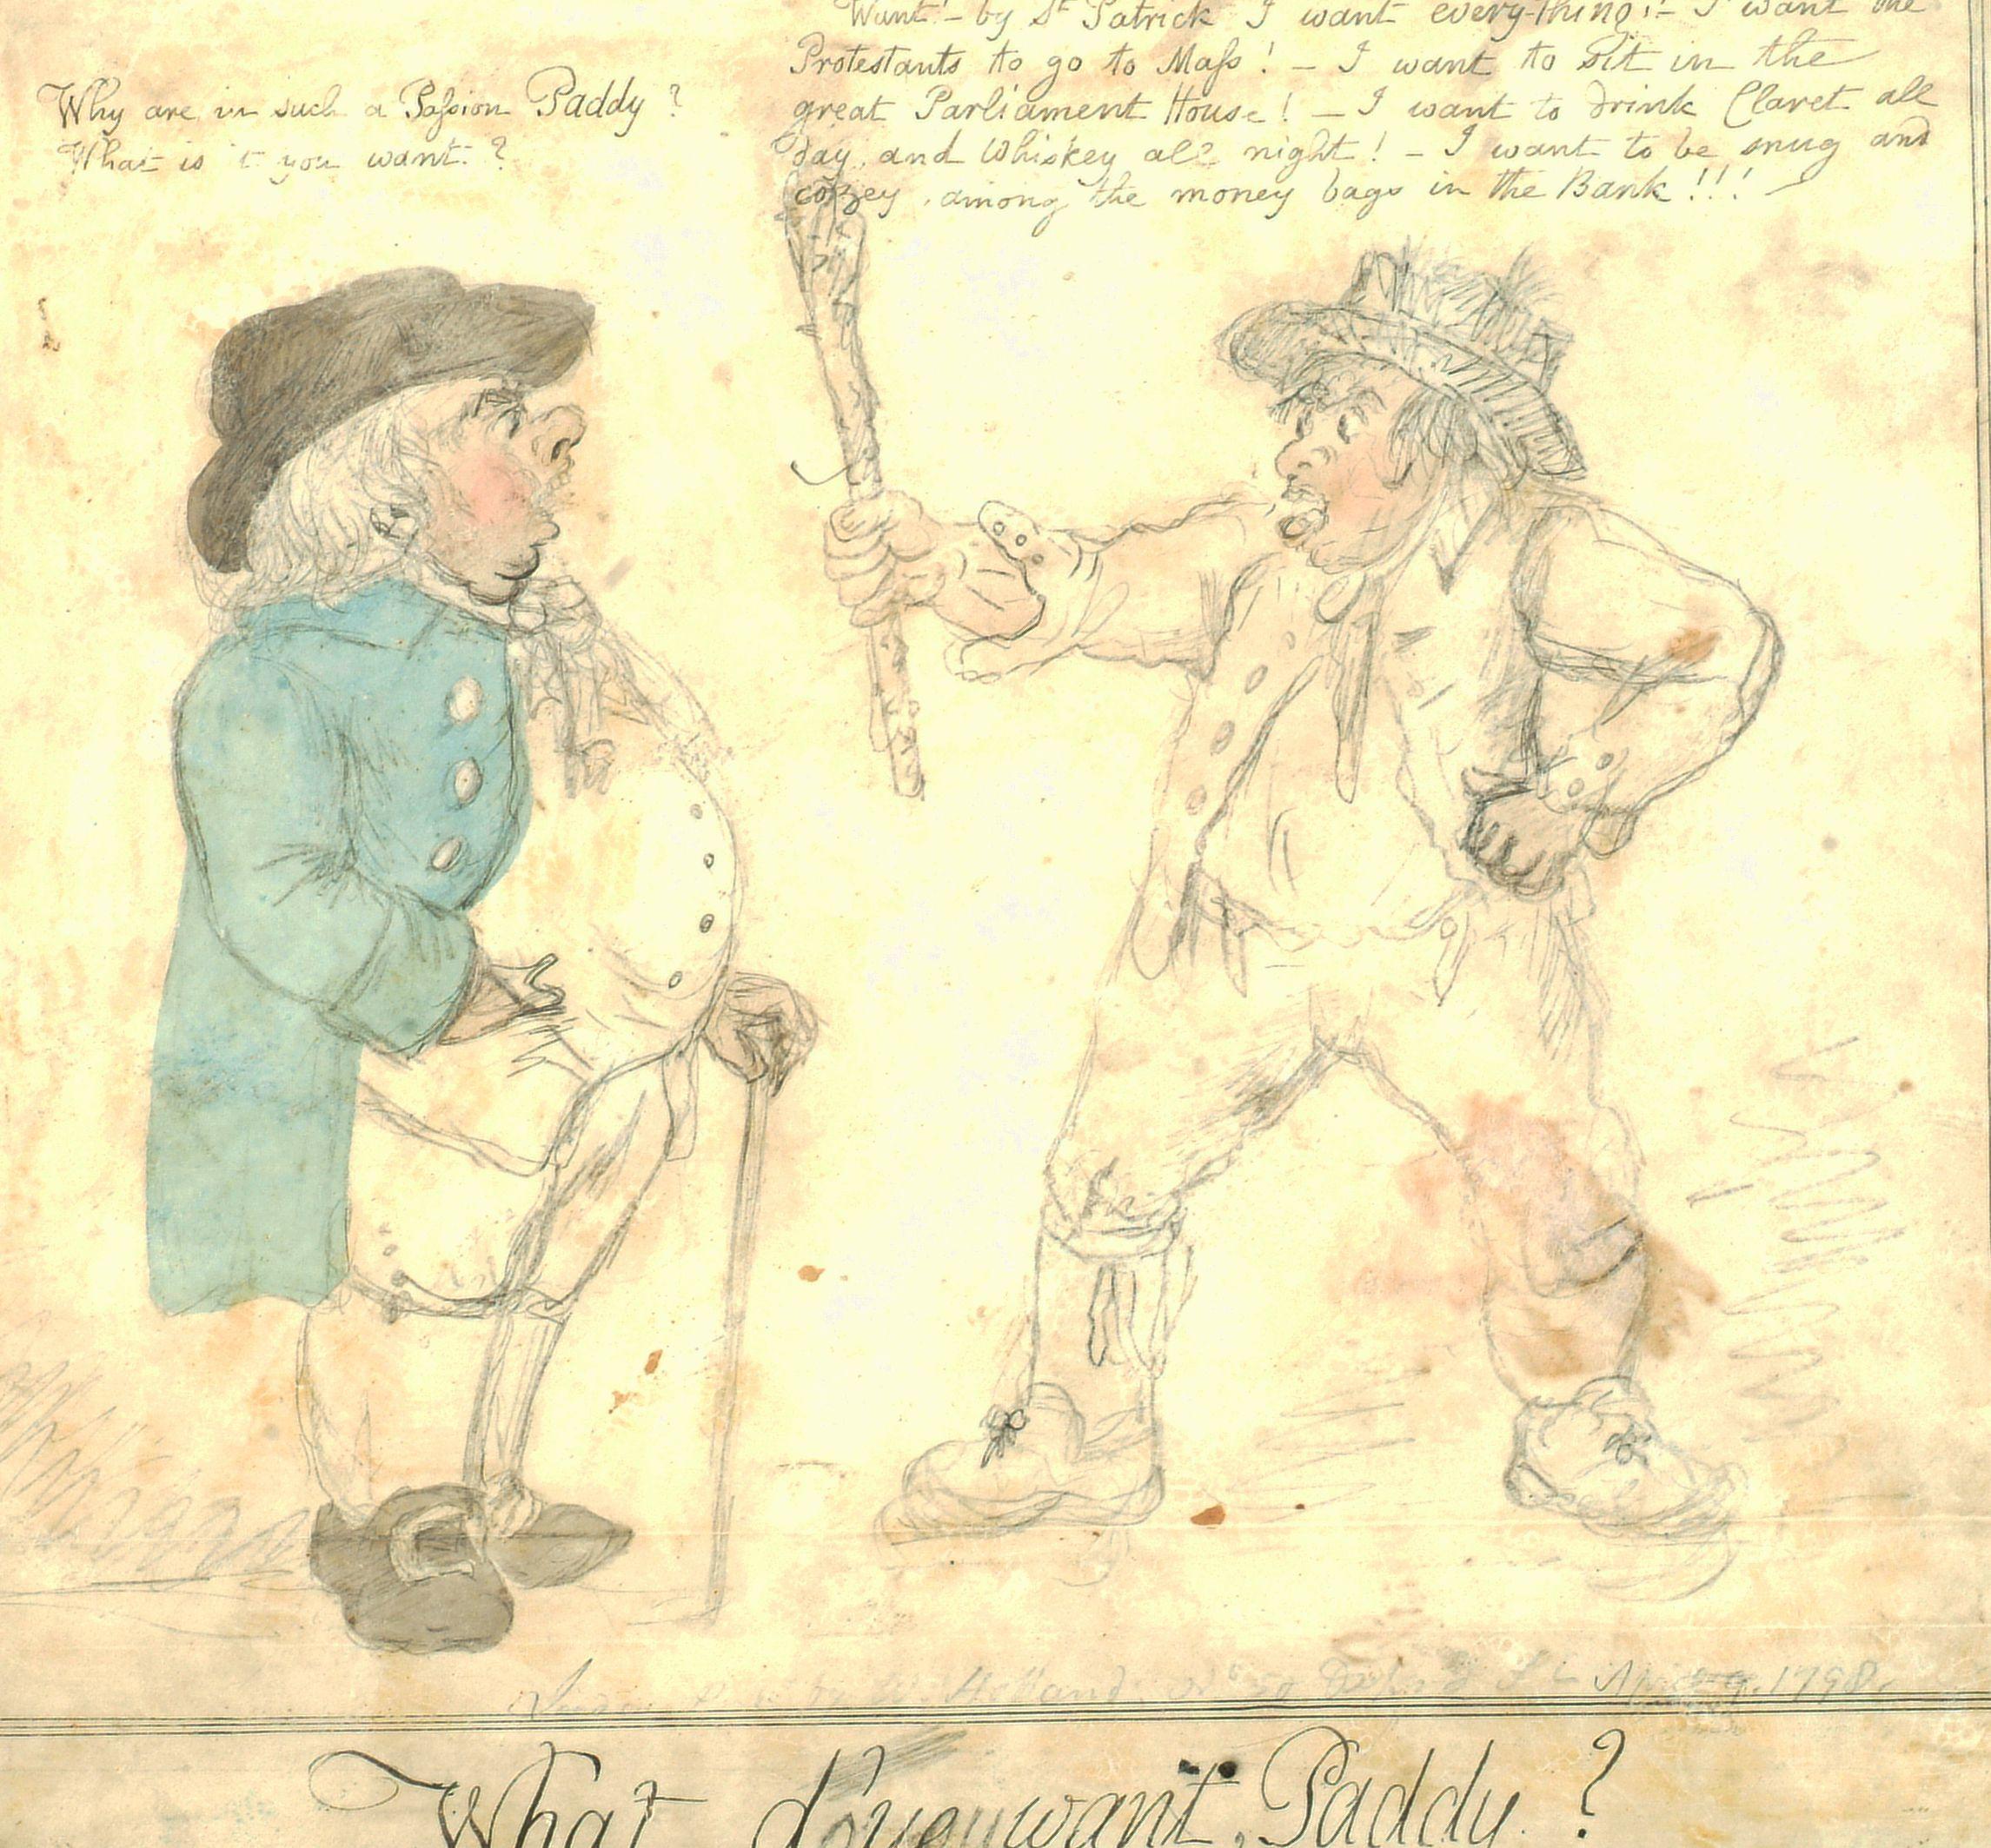 Why are in such a Passion Paddy ?
What is it you want ?
Want! - by St Patrick I want every-thing!! - I want the
Protestants to go to Mass ! - I want to Sit in the
great Parliament House ! - I want to drink Claret all
day, and Whiskey all night ! - I want to be snug and
cozey, among the money bags in the Bank !!! -
by W. Holland, No 50 1798.
What d'ye want, Paddy ?